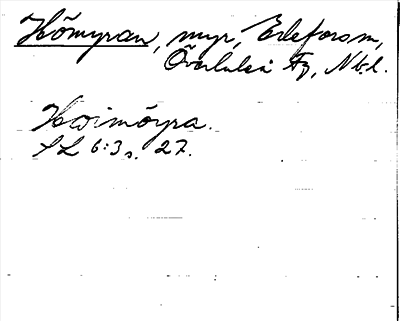 Hömyran, myr, Edefors sn,
Överluleå Fg, Nb. l.
Hwimöyra.
SL 6:3 s. 27.